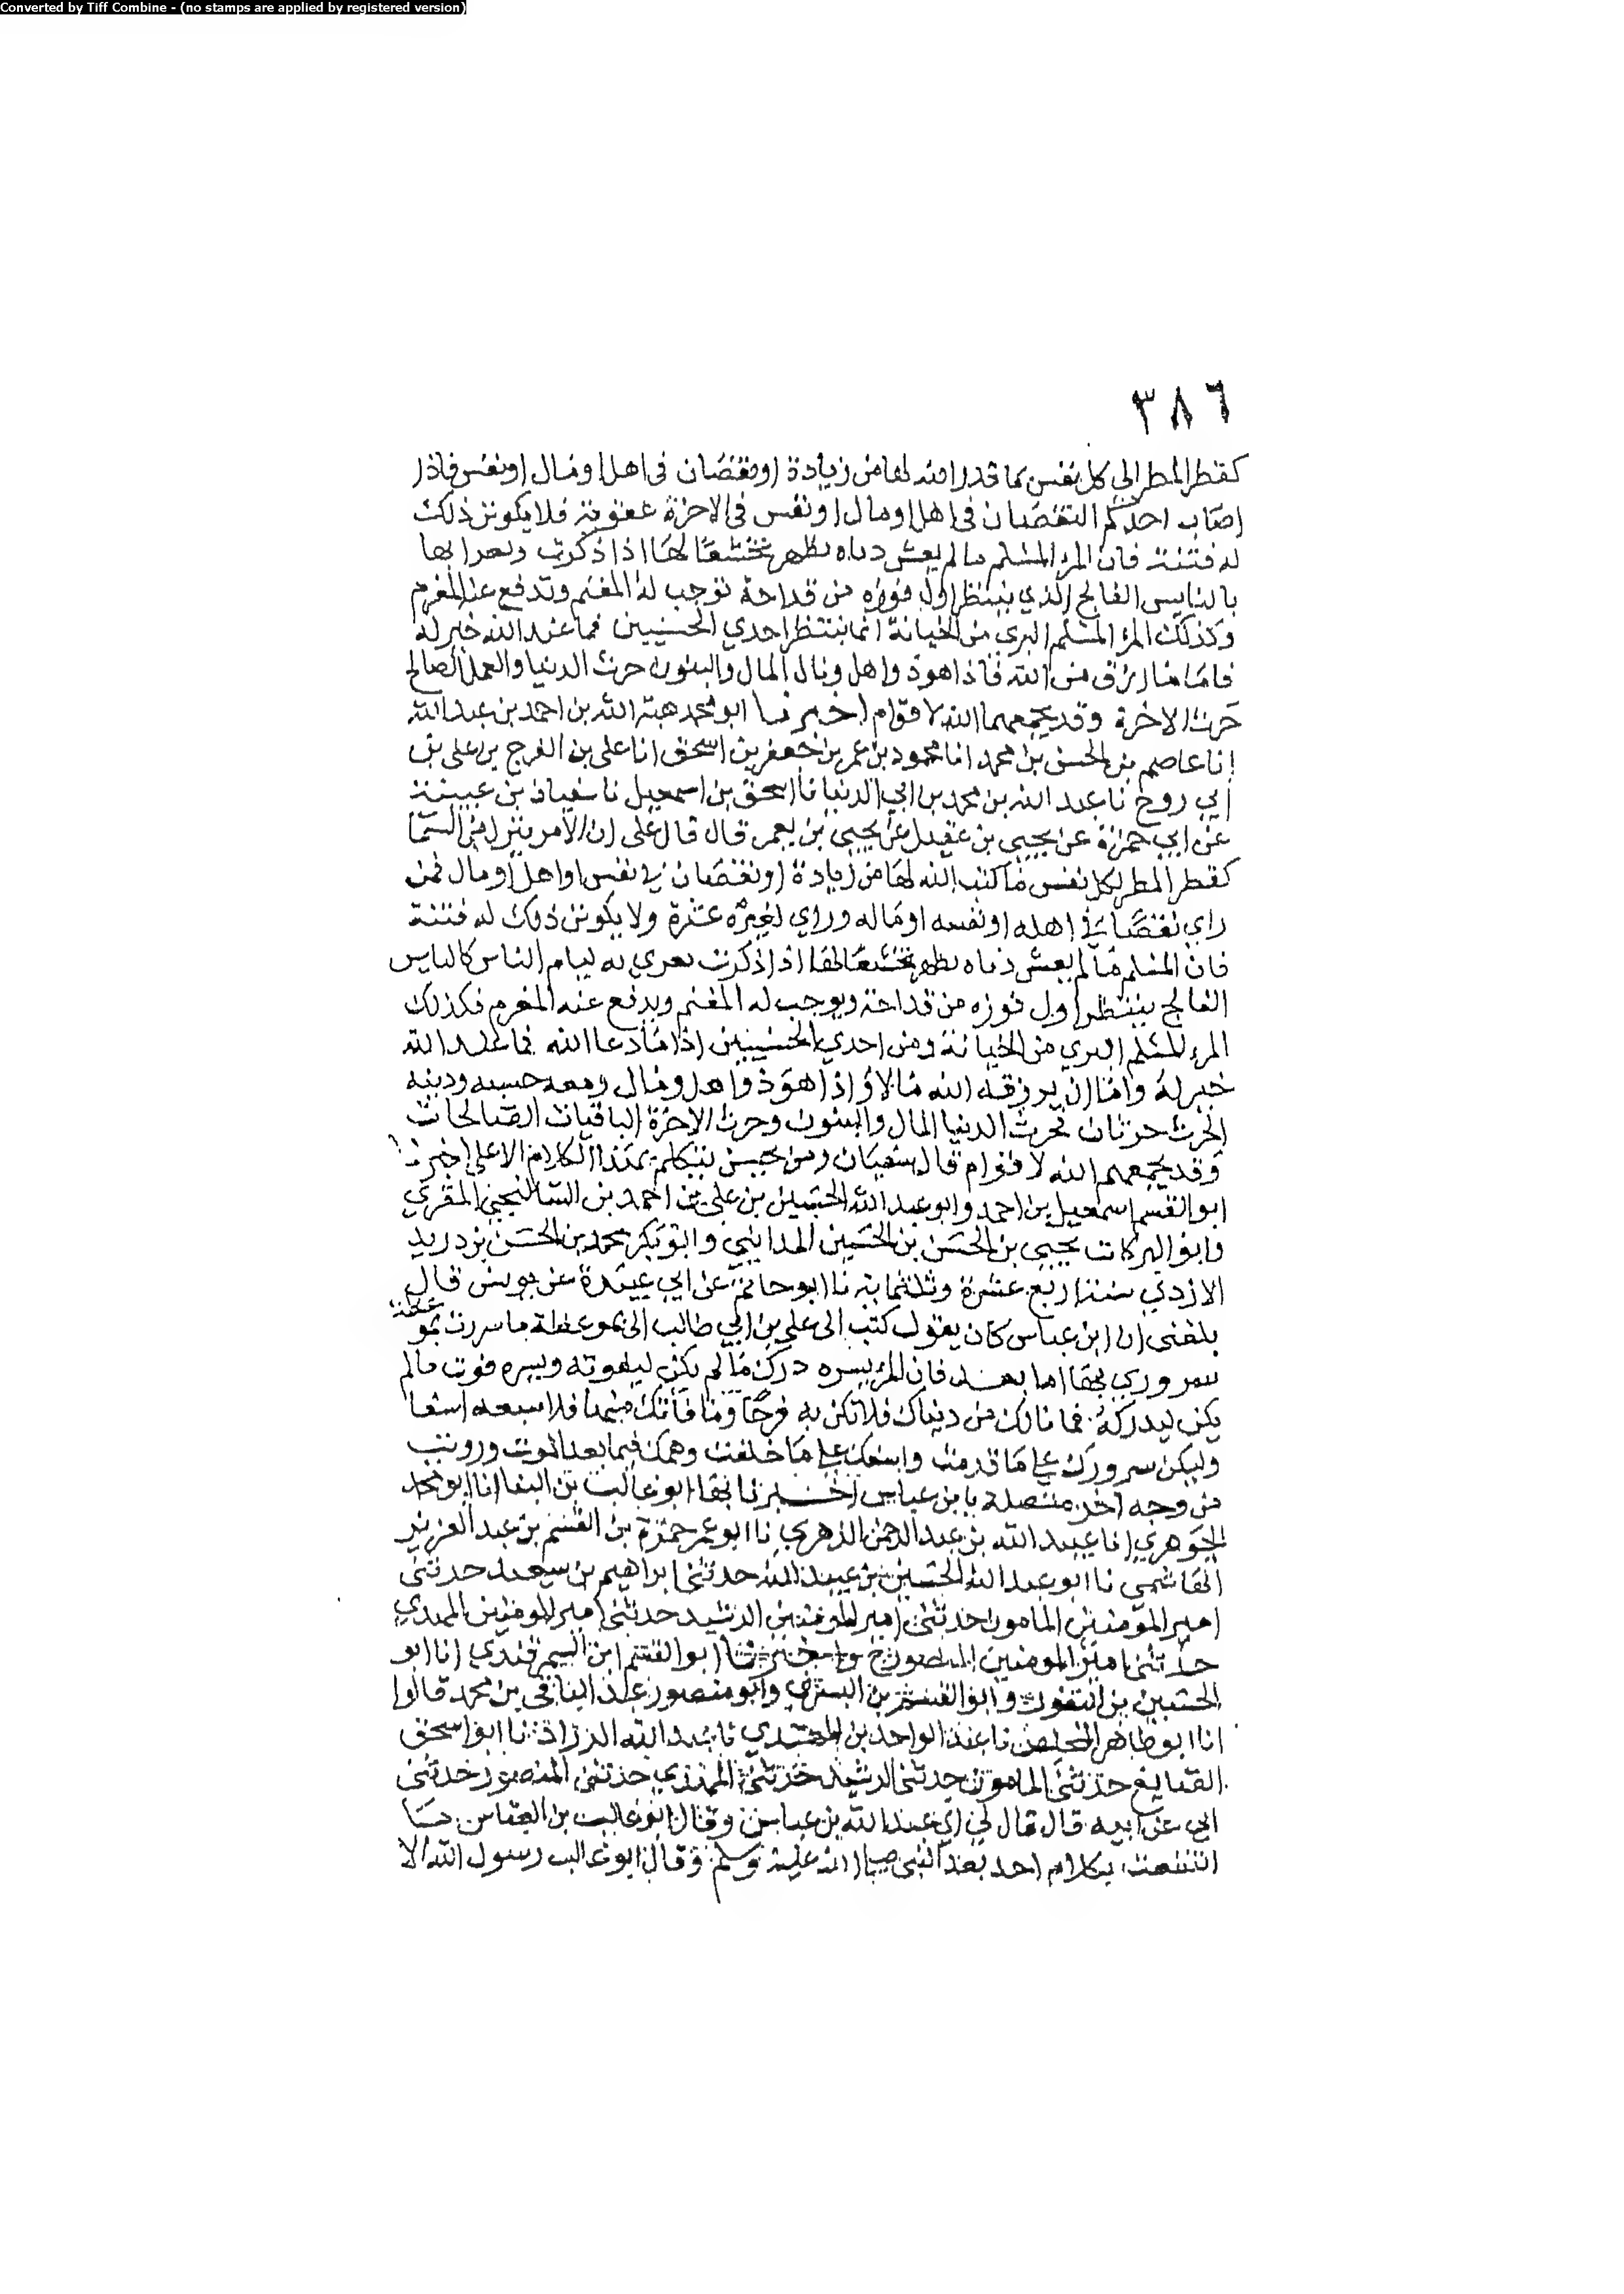 Converted by Tiff Combine - (no stamps are applied by registered version)
٣٨٦
كقطر المطر الى كل نفس بما قدر الله لها من زيادة او نقصان فى اهل او مال او نفس فاذا
اصاب احدكم النقصان فى اهل او مال او نفس فى الاخرة عقوبة فلا يكونن ذلك
له فتنة فان المرء المسلم ما لم يعش دناه يظهر تخشعا لها اذا ذكرت ويعرا بها
بالنايس الفالج الذي ينتظر اول فوزه من قداحة توجب له المغنم وتدفع عنه المغرم
وكذلك المرء المسلم البرى من الخيانة انما ينتظر احدي الحسنيين فما عند الله خير له
فاما ما رزق من الله فاذا هو ذو اهل ومال المال والبنون حرث الدنيا والعمل الصالح
حرث الاخرة وقد يجمعهما الله لاقوام اخبرنا ابو محمد هبة الله بن احمد بن عبد الله
انا عاصم بن الحسن بن محمد انا محمود بن عمر بن جعفر بن اسحق انا على بن الفرج بن على بن
ابي روح نا عبد الله بن محمد بن ابي الدنيا نا اسحق بن اسمعيل نا سفيان بن عيينة
عن ابي حمزة عن يحيى بن عقيل عن يحيى بن يعمر قال قال على ان الامر ينزل من السما
كقطر المطر لكل نفس ما كتب الله لها من زيادة او نقصان في نفس او اهل او مال فمن
راي نقصا فى اهله او نفسه او ماله وراي لغيره عثرة ولا يكونن ذلك له فتنة
فان المسلم ما لم يعش دناه يظهر تخشعا لها اذا ذكرت يعري به ليام الناس كالياس
الفالج ينتظر اول فوزه من قداحة ويوجب له المغنم ويدفع عنه المغرم فكذلك
المرء المسلم البري من الخيانة ومن احدي الحسنيين اذا ما دعا الله فما عند الله
خير له واما ان يرزقه الله مالا واذا هو ذو اهل ومال ومعه حسبه ودينه
الحرث حرثان فحرث الدنيا المال والبنون وحرث الاخرة الباقيات الصالحات
وقد يجمعهم الله لاقوام قال سفيان ومن يحسن يتكلم بهذا الكلام الا على اخبرنا
ابو القسم اسمعيل بن احمد وابو عبد الله الحسين بن على بن احمد بن السالنجي المقري
وابو البركات يحيى بن الحسن بن الحسين المدايني وابو بكر محمد بن الحسن بن دريد
الازدي سنة اربع عشرة وثلثماية نا ابو حاتم عن ابي عبيدة عن يونس قال
بلغنى ان ابن عباس كان يقول كتب الى على بن ابي طالب الى بموعظة ما سررت بموعظة
سروري بها اما بعد فان المرء يسره درك ما لم يكن ليفوته ويسره فوت ما لم
يكن ليدركه فما نالك من دنياك فلا تكن به فرحا وما فاتك منها فلا تتبعه اسفا
وليكن سرورك على ما قدمت واسفك على ما خلفت وهمك فيما بعد الموت ورويت
من وجه اخر متصلة بابن عباس اخبرنا بها ابو غالب بن البنا انا ابو محمد
الجوهري انا عبيد الله بن عبد الرحمن الزهري نا ابو عمر حمزة بن القسم بن عبد العزيز
الهاشمي نا ابو عبد الله الحسين بن عبيد الله حدثنى ابراهيم بن سعيد حدثنى
امير المومنين المامون حدثنى امير المومنين الرشيد حدثنى امير المومنين المهدي
حدثنى امير المومنين المنصور ح واخبرنا ابو القسم ابن السمرقندي انا ابو
الحسين بن النقور وابو القسم بن البسري وابو منصور عبد الباقى بن محمد قالوا
انا ابو طاهر المخلص نا عبد الواحد بن المهتدي نا عبد الله الرزاذ نا ابو اسحق
الصايغ حدثنى المامون حدثنى الرشيد حدثنى المهدي حدثنى المنصور حدثنى
ابي عن ابيه قال قال لي ابي عبد الله بن عباس وقال ابو غالب بن العباس ما
انتفعت بكلام احد بعد النبى صلى الله عليه وسلم وقال ابو غالب رسول الله الا